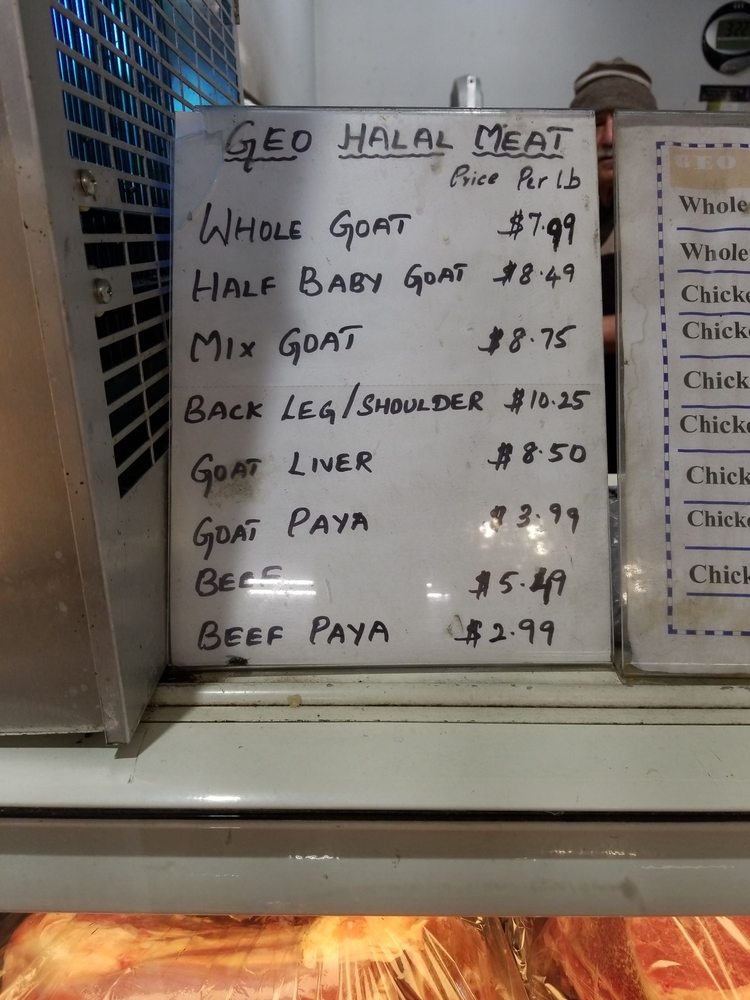 GEO HALAL MEAT
Price Per lb
WHOLE GOAT $7.99
HALF BABY GOAT $8.49
MIX GOAT $8.75
BACK LEG/SHOULDER $10.25
GOAT LIVER $8.50
GOAT PAYA $3.99
BEEF $5.49
BEEF PAYA $2.99
GEO
Whole
Whole
Chicke
Chick
Chick
Chicke
Chick
Chicke
Chick